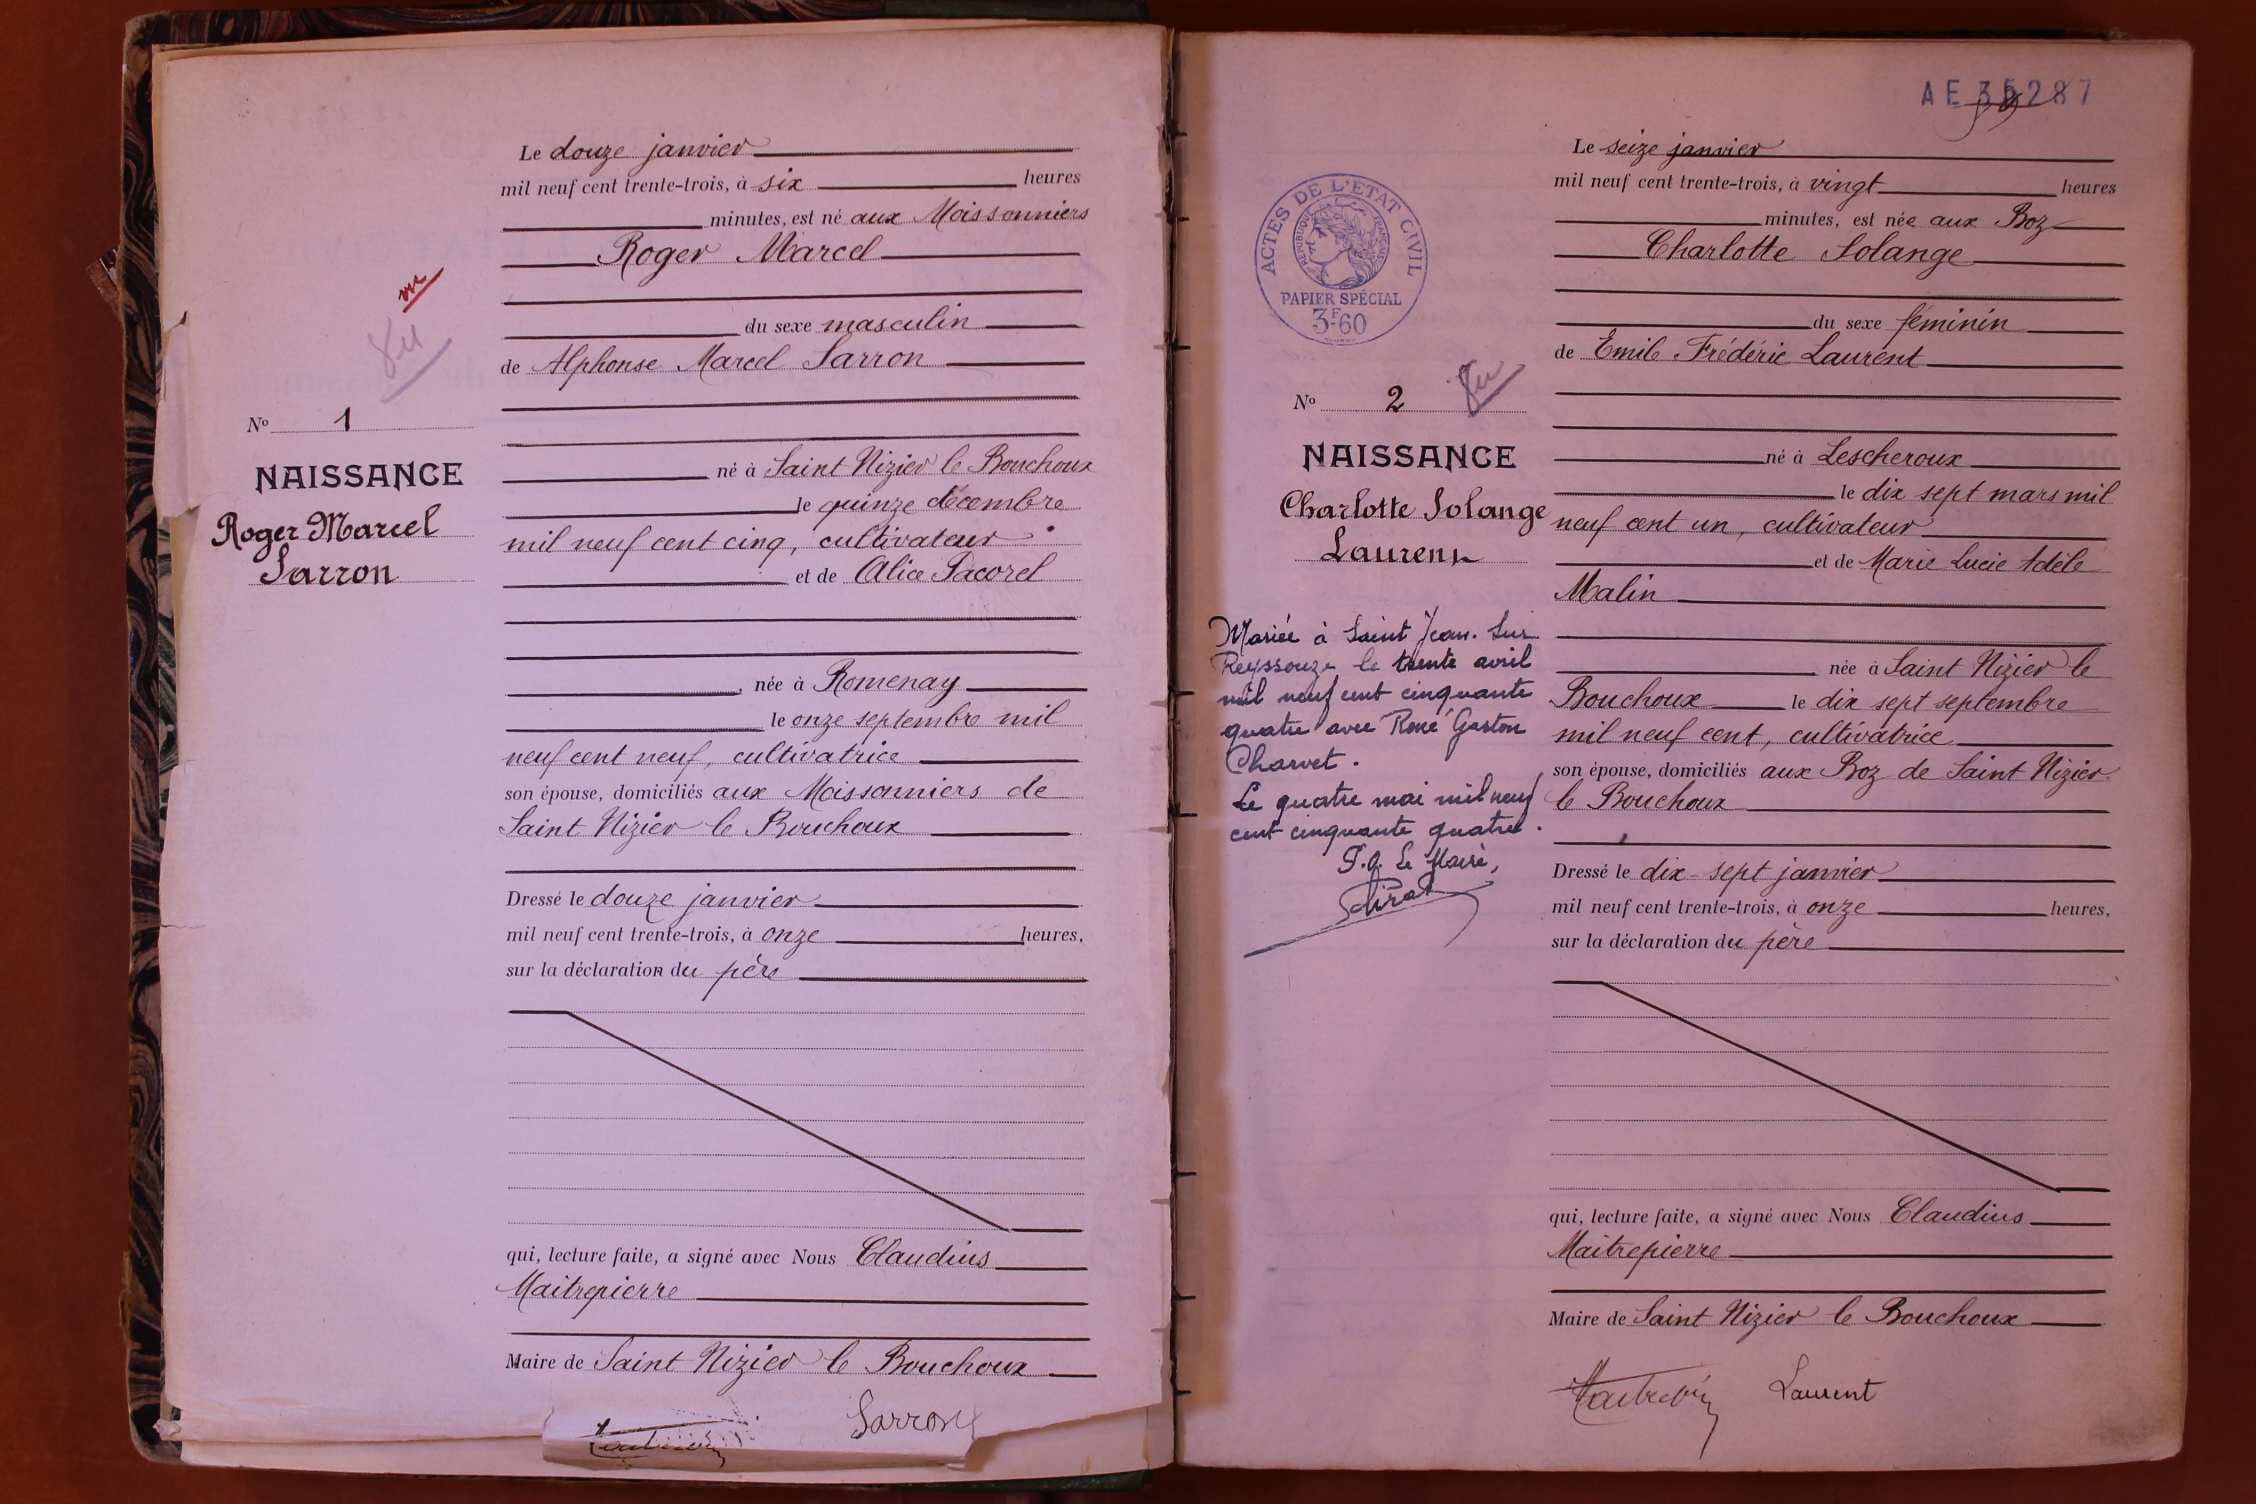 Le douze janvier
mil neuf cent trente-trois, à six heures
minutes, est né aux Moissonniers
Roger Marcel
du sexe masculin
de Alphonse Marcel Sarron
né à Saint Nizier le Bouchoux
le quinze décembre
mil neuf cent cinq, cultivateur
et de Alice Pacorel
née à Romenay
le onze septembre mil
neuf cent neuf, cultivatrice
son épouse, domiciliés aux Moissonniers de
Saint Nizier le Bouchoux
Dressé le douze janvier
mil neuf cent trente-trois, à onze heures,
sur la déclaration du père
qui, lecture faite, a signé avec Nous Claudius
Maitrepierre
Maire de Saint Nizier le Bouchoux
Sarron
No 1
NAISSANCE
Roger Marcel
Sarron
AE 35287
ACTES DE L'ETAT CIVIL
REPUBLIQUE FRANÇAISE
PAPIER SPÉCIAL
3F-60
No 2
NAISSANCE
Charlotte Solange
Laurent
Mariée à Saint Jean. Sur
Reyssouze le trente avril
mil neuf cent cinquante
quatre avec René Gaston
Charvet.
Le quatre mai mil neuf
cent cinquante quatre.
Le Maire,
Le seize janvier
mil neuf cent trente-trois, à vingt heures
minutes, est née aux Boz
Charlotte Solange
du sexe féminin
de Emile Frédéric Laurent
né à Lescheroux
le dix sept mars mil
neuf cent un, cultivateur
et de Marie Lucie Adèle
Malin
née à Saint Nizier le
Bouchoux le dix sept septembre
mil neuf cent, cultivatrice
son épouse, domiciliés aux Boz de Saint Nizier
le Bouchoux
Dressé le dix-sept janvier
mil neuf cent trente-trois, à onze heures,
sur la déclaration du père
qui, lecture faite, a signé avec Nous Claudius
Maitrepierre
Maire de Saint Nizier le Bouchoux
Laurent